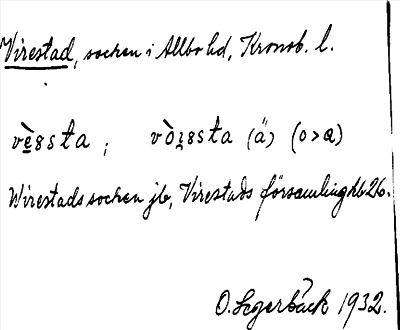 Virestad, socken i Allbo hd, Kronob. l.
vèssta; vòzssta (ä) (o>a)
Wirestads socken jb, Virestads församling kb 26.
O. Segerbäck 1932.